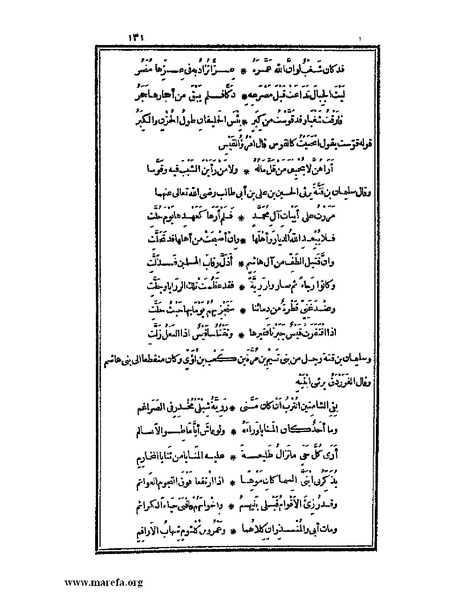 ١٣١
قد كان شغب لو ان الله عمره * عزا تزاد به في عزها مضر
ليت الجبال تداعت قبل مصرعه * دكا فلم يبق من أحجارها حجر
فارقت شغبا وقد قوست من كبر * بئس الحليفان طول الحزن والكبر
قوله قوست يقول انحنيت كالقوس قال امرؤ القيس
أراهن لا يحببن من قل ماله * ولا من رأين الشيب فيه وقوسا
وقال سليمان بن قتة يرثي الحسين بن علي بن أبي طالب رضي الله تعالى عنهما
مررت على أبيات آل محمد * فلم أرها كعهدها يوم حلت
فلا يبعد الله الديار وأهلها * وان أصبحت من أهلها قد تخلت
وان قتيل الطف من آل هاشم * أذل رقاب المسلمين فذلت
وكانوا رجاء ثم صاروا رزية * فقد عظمت تلك الرزايا وجلت
وعند غني قطرة من دمائنا * سنجزيهم يوما بها حيث حلت
اذا افتقرت قيس جبرنا فقيرها * وتقتلنا قيس اذا النعل زلت
وسليمان بن قتة رجل من بني تيم بن مرة بن كعب بن لؤي وكان منقطعا الى بني هاشم
وقال الفرزدق يرثي ابنيه
بفي الشامتين الترب ان كان مسني * رزية شبلي مخدر في الضراغم
وما أحد كان المنايا وراءه * ولو عاش أياما طوالا بسالم
أرى كل حي ما تزال طليعة * عليه المنايا من ثنايا المخارم
يذكرني ابني السماكان موهنا * اذا ارتفعا فوق النجوم العواتم
وقد رزئ الأقوام قبلي بنيهم * واخوانهم فاقني حياء الكرائم
ومات أبي والمنذران كلاهما * وعمرو بن كلثوم شهاب الأراقم
www.marefa.org